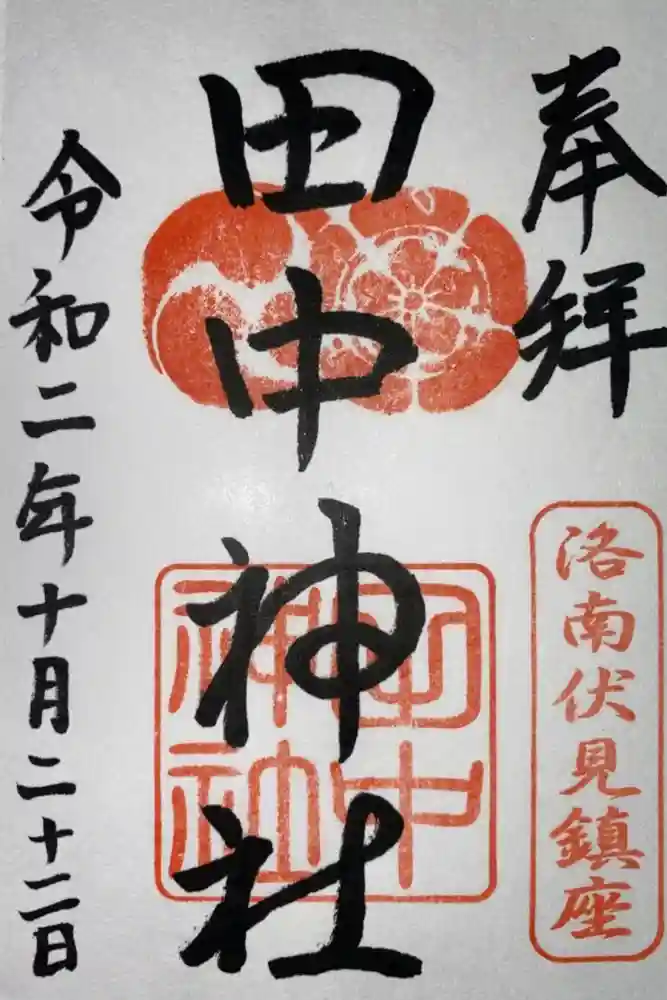 奉拝
洛南伏見鎮座
田中神社
田中神社
令和二年十月二十二日